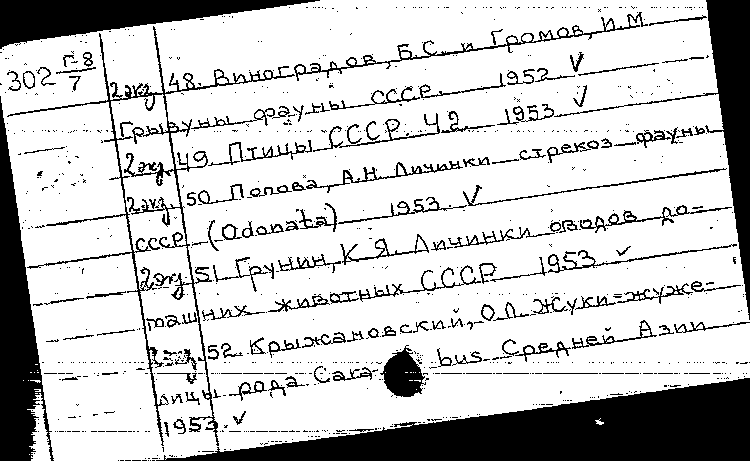 302 Г-8/7
2 экз. 48. Виноградов, Б.С. и Громов, И.М
Грызуны фауны СССР. 1952 ✓
2 экз. 49. Птицы СССР. Ч 2. 1953 ✓
2 экз. 50. Попова, А.Н. Личинки стрекоз фауны
СССР (Odonata) 1953. ✓
2 экз. 51. Грунин, К.Я. Личинки оводов до-
машних животных СССР 1953 ✓
2 экз. 52. Крыжановский, О.Л. Жуки-жуже-
лицы рода Cara bus Средней Азии
1953. ✓